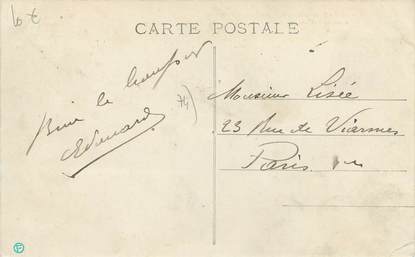 10 €
CARTE POSTALE
Bien le bonjour
Edouard
74)
Monsieur Lisée
23 Rue de Viarmes
Paris